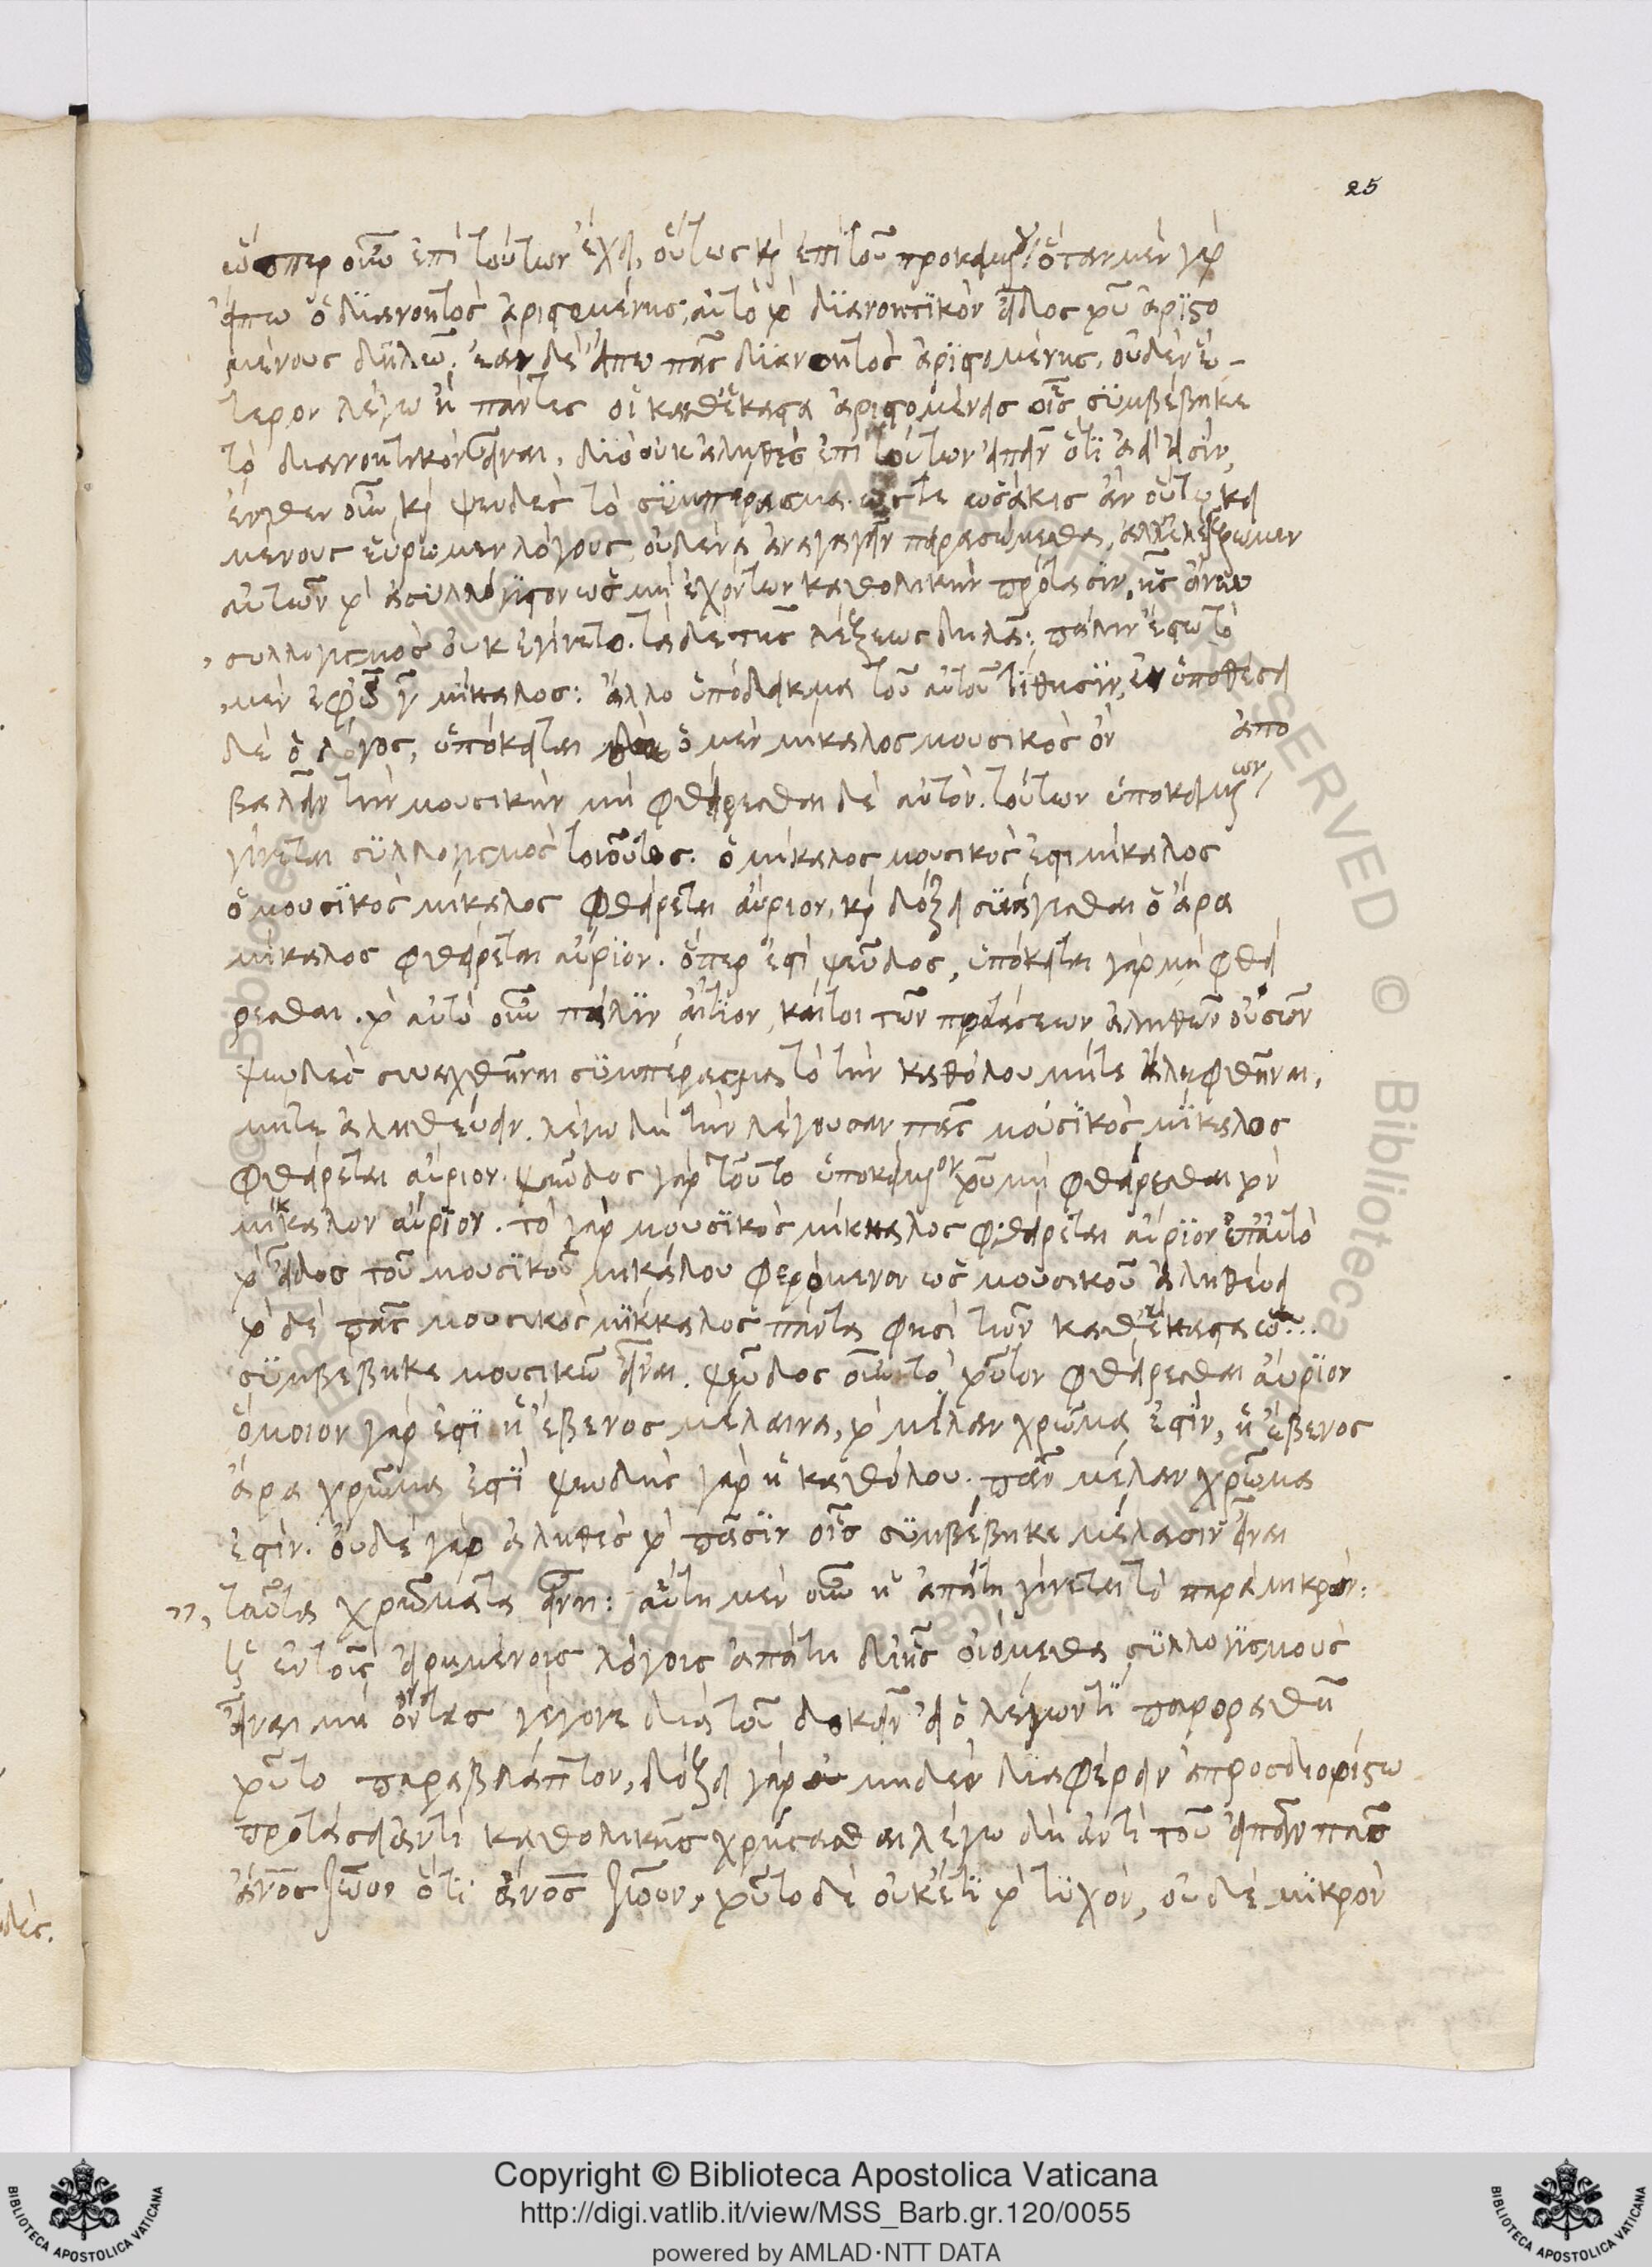 25
ὥσπερ οὖν ἐπὶ τούτων ἔχει, οὕτως καὶ ἐπὶ τοῦ προκειμένου· ὅταν μὲν γὰρ
εἴπω ὁ διανοητὸς ἀριστομένης, αὐτὸ τὸ διανοητικὸν εἶδος τοῦ ἀριστο
μένους δηλῶ. ἐὰν δὲ εἴπω πᾶς διανοητὸς ἀριστομένης, οὐδὲν ἕ-
τερον λέγω ἢ πάντες οἱ καθέκαστα ἀριστομένεις οἷς συμβέβηκε
τὸ διανοητικὸν εἶναι, διὸ οὐκ ἀληθὲς ἐπὶ τούτων εἰπεῖν ὅτι ἀεί εἰσιν,
ἔνθεν οὖν καὶ ψευδὲς τὸ συμπέρασμα. ὥστε ὡσάκις ἂν οὕτω κει
μένους εὕρωμεν λόγους, οὐδένα ἀναγαγεῖν πειρασόμεθα,
αὐτῶν τὸ ἀσυλλόγιστον ὡς μὴ ἐχόντων καθολικὴν πρότασιν, ἧς ἄνευ
συλλογισμὸς οὐκ ἐγίνετο. τὰ δὲ τῆς λέξεως δῆλα: πάλιν ἔστω τὸ
μὲν ἐφ' οὗ γ μίκαλος: ἄλλο ὑπόδειγμα τοῦ αὐτοῦ τίθησιν, ἐν ὑποθέσει
δὲ ὁ λόγος, ὑπόκειται ὁ μὲν μίκαλος μουσικὸς ὂν ἀπο
βαλεῖν τὴν μουσικὴν μὴ φθείρεσθαι δὲ αὐτόν. τούτων ὑποκειμένων
γίνεται συλλογισμὸς τοιοῦτος. ὁ μίκαλος μουσικός ἐστι μίκαλος
ὁ μουσικὸς μίκαλος φθείρεται αὔριον, καὶ δόξει συνάγεσθαι ὁ ἄρα
μίκαλος φθείρεται αὔριον. ὅπερ ἐστὶ ψεῦδος, ὑπόκειται γὰρ μὴ φθεί
ρεσθαι. τὸ αὐτὸ οὖν πάλιν αἴτιον, καίτοι τῶν προτάσεων ἀληθῶν οὐσῶν
ψευδὲς συναχθῆναι συμπέρασμα τὸ τὴν καθόλου μήτε ληφθῆναι,
μήτε ἀληθεύειν. λέγω δὴ τὴν λέγουσαν πᾶς μουσικὸς μίκαλος
φθείρεται αὔριον. ψεῦδος γὰρ τοῦτο ὑποκειμένου τοῦ μὴ φθείρεσθαι τὸν
μίκκαλον αὔριον. τὸ γὰρ μουσικὸς μίκκαλος φθείρεται αὔριον ἐπ' αὐτὸ
τὸ εἶδος τοῦ μουσικοῦ μικκάλου φερόμενον ὡς μουσικοῦ ἀληθεύει
τὸ δὲ πᾶς μουσικὸς μίκκαλος πάντα φησὶ τῶν καθέκαστα ᾧ
συμβέβηκε μουσικῶ εἶναι. ψεῦδος οὖν τὸ τοῦτον φθείρεσθαι αὔριον
ὅμοιον γάρ ἐστι ἡ ἔβενος μέλαινα, τὸ μέλαν χρῶμα ἐστίν, ἡ ἔβενος
ἄρα χρῶμα ἐστί ψευδὴς γὰρ ἡ καθόλου. πᾶν μέλαν χρῶμα
ἐστίν. οὐδὲ γὰρ ἀληθὲς τὸ πᾶσιν οἷς συμβέβηκε μέλασιν εἶναι
ταῦτα χρώματα εἶναι: αὕτη μὲν οὖν ἡ ἀπάτη γίνεται τὸ παρὰ μικρόν:
ἡ ἐν τοῖς εἰρημένοις λόγοις ἀπάτη δι' ἧς οἰόμεθα συλλογισμοὺς
εἶναι μὴ ὄντας γέγονε διὰ τοῦ δοκεῖν εἰ ὁ λέγων τι παροραθῆ
τοῦτο παραβλάπτον, δόξει γὰρ μηδὲν διαφέρειν ἀπροσδιορίστω
προτάσει ἀντὶ καθολικῆς χρήσασθαι λέγω δὴ ἀντὶ τοῦ εἰπεῖν πᾶς
ἄνος ζῶον, ὅτι ἄνος ζῶον, τοῦτο δὲ οὐκέτι τὸ τυχόν, οὐδὲ μικρόν